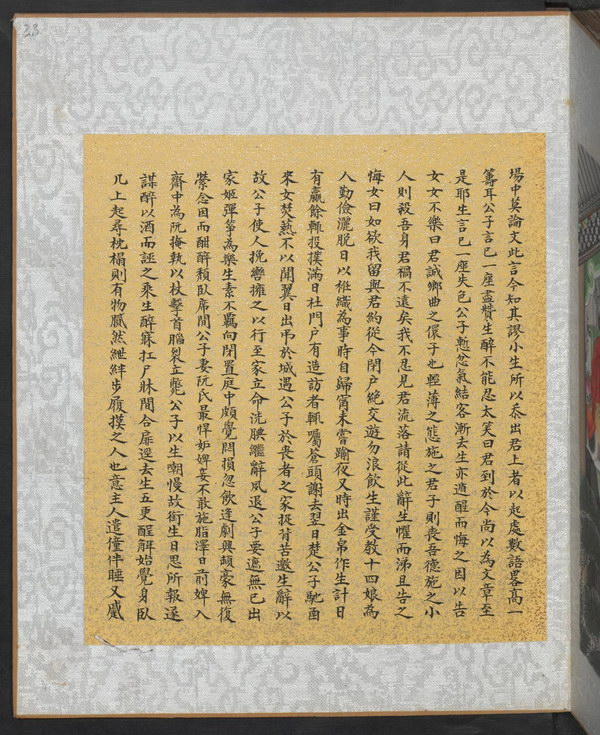 23
場中莫論文此言今知其謬小生所以忝出君上者以起處數語畧高一
籌耳公子言已一座盡贊生醉不能忍太笑曰君到於今尚以為文章至
是耶生言已一座失色公子慙忿氣結客漸去生亦遁醒而悔之因以告
女女不樂曰君誠鄉曲之儇子也輕薄之態施之君子則喪吾德施之小
人則殺吾身君禍不遠矣我不忍見君流落請從此辭生懼而涕且告之
悔女曰如欲我留與君約從今閉户絕交遊勿浪飲生謹受教十四娘為
人勤儉灑脫日以紝織為事時自歸甯未嘗踰夜又時出金帛作生計日
有贏餘輒投撲滿日杜門户有造訪者輒囑蒼頭謝去翌日楚公子馳函
來女焚爇不以聞翼日出弔於城遇公子於喪者之家捉臂苦邀生辭以
故公子使人挽轡擁之以行至家立命洗腆繼辭夙退公子要遮無已出
家姬彈箏為樂生素不羈向閉置庭中頗覺悶損忽飲逢劇興頓豪無復
縈念因而酣醉頹臥席間公子妻阮氏最悍妬婢妾不敢施脂澤日前婢入
齋中為阮掩執以杖擊首腦裂立斃公子以生嘲慢故銜生日思所報遂
謀醉以酒而誣之乘生醉寐扛尸牀間合扉逕去生五更酲解始覺身臥
几上起尋枕榻則有物膩然紲絆步履摸之人也意主人遣僮伴睡又蹙